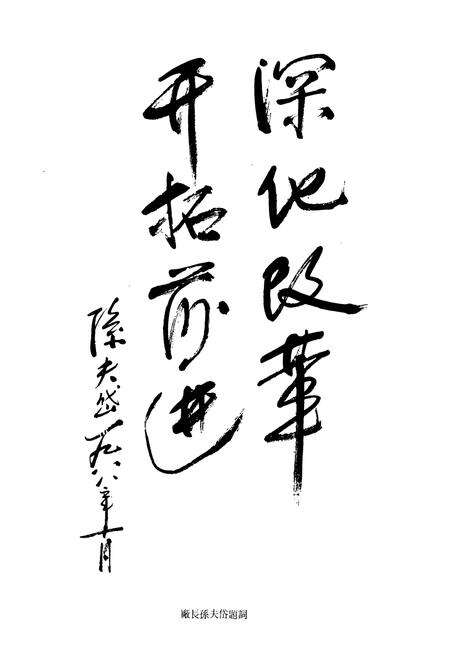 深化改革
开拓前进
孫夫岱一九八八年十月
廠長孫夫岱題詞